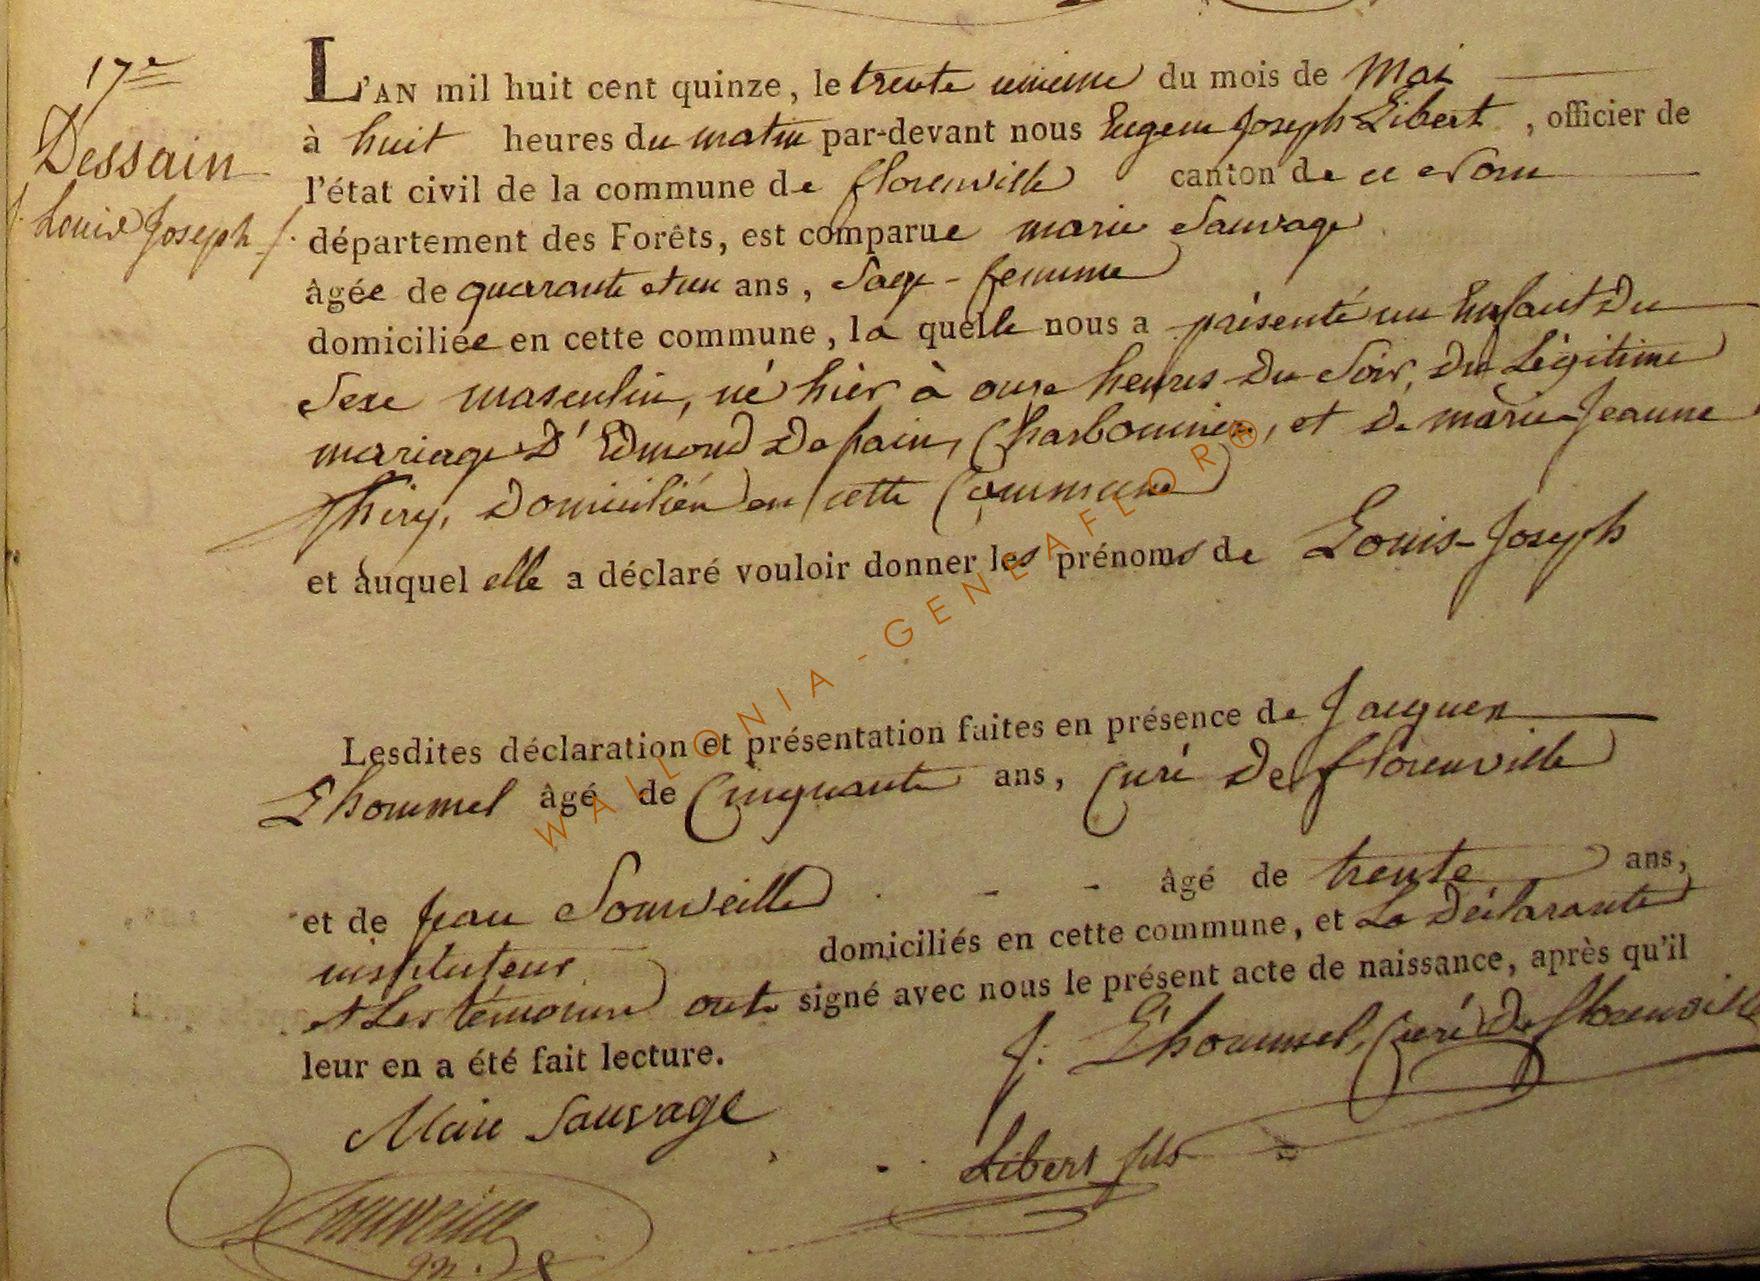 17e
Dessain
Louis Joseph
L'AN mil huit cent quinze, le trente unieme du mois de Mai
à huit heures du matin par-devant nous Eugene Joseph Libert, officier de
l'état civil de la commune de florenville canton de ce nom
département des Forêts, est comparue marie Sauvage
âgée de quarante et un ans, Sage-femme
domiciliée en cette commune, la quelle nous a présenté un Enfant Du
Sexe masculin, né hier à onze heures Du Soir, Du Légitime
mariage D'Edmond Dessain, Charbonnier, et De marie-Jeanne
thiry, Domiciliés en cette Commune
et auquel elle a déclaré vouloir donner les prénoms de Louis-Joseph
Lesdites déclaration et présentation faites en présence de Jacques
Lhommel âgé de Cinquante ans, Curé De florenville
et de Jean Sourveille âgé de trente ans,
instituteur domiciliés en cette commune, et La Déclarante
et Les témoins ont signé avec nous le présent acte de naissance, après qu'il
leur en a été fait lecture.
J. Lhommel, Curé De florenville
Marie Sauvage
Libert fils
WALLONIA-GENEAFLOR®